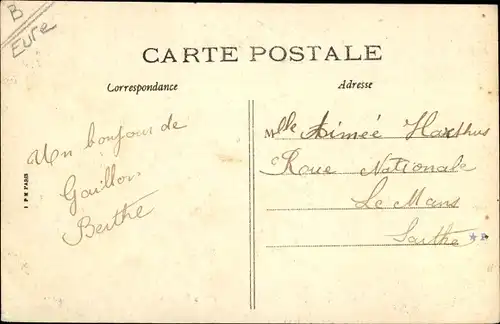 B
Eure
CARTE POSTALE
Correspondance
Adresse
Un bonjour de
Gaillon
Berthe
Mlle Aimée
Roue Nationale
Le Mans
Sarthe
I P M PARIS